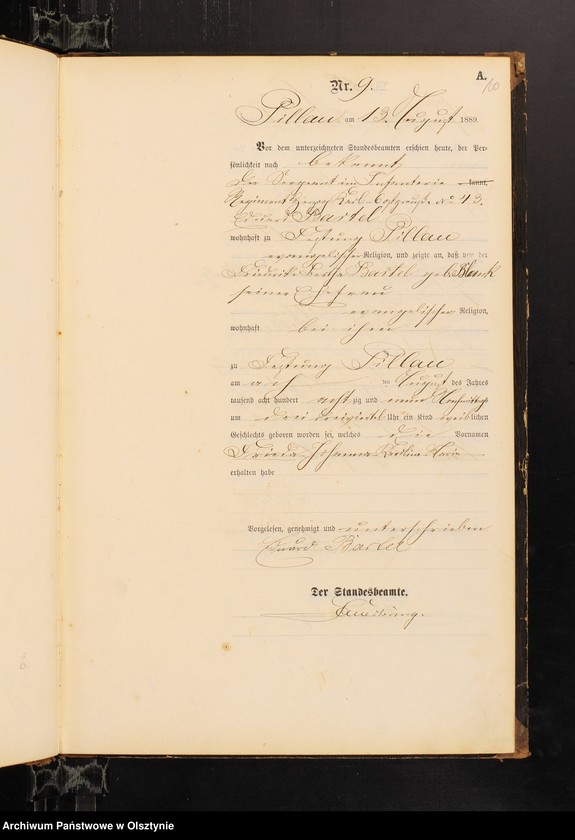 A.
10
Nr. 9.
Pillau am 13. August 1889.
Vor dem unterzeichneten Standesbeamten erschien heute, der Per-
sönlichkeit nach bekannt,
der Sergeant im Infanterie kannt,
Regiment Herzog Karl No 43.
Eduard Bartel
wohnhaft zu Festung Pillau
evangelischer Religion, und zeigte an, daß von der
Bartel geb. Blank
seiner Ehefrau
evangelischer Religion,
wohnhaft bei ihm
zu Festung Pillau
am acht ten August des Jahres
tausend acht hundert achtzig und neun Nachmittags
um drei dreiviertel Uhr ein Kind weiblichen
Geschlechts geboren worden sei, welches die Vornamen
Frieda Johanna Karoline Marie
erhalten habe
Vorgelesen, genehmigt und unterschrieben
Eduard Bartel
Der Standesbeamte.
Archiwum Państwowe w Olsztynie